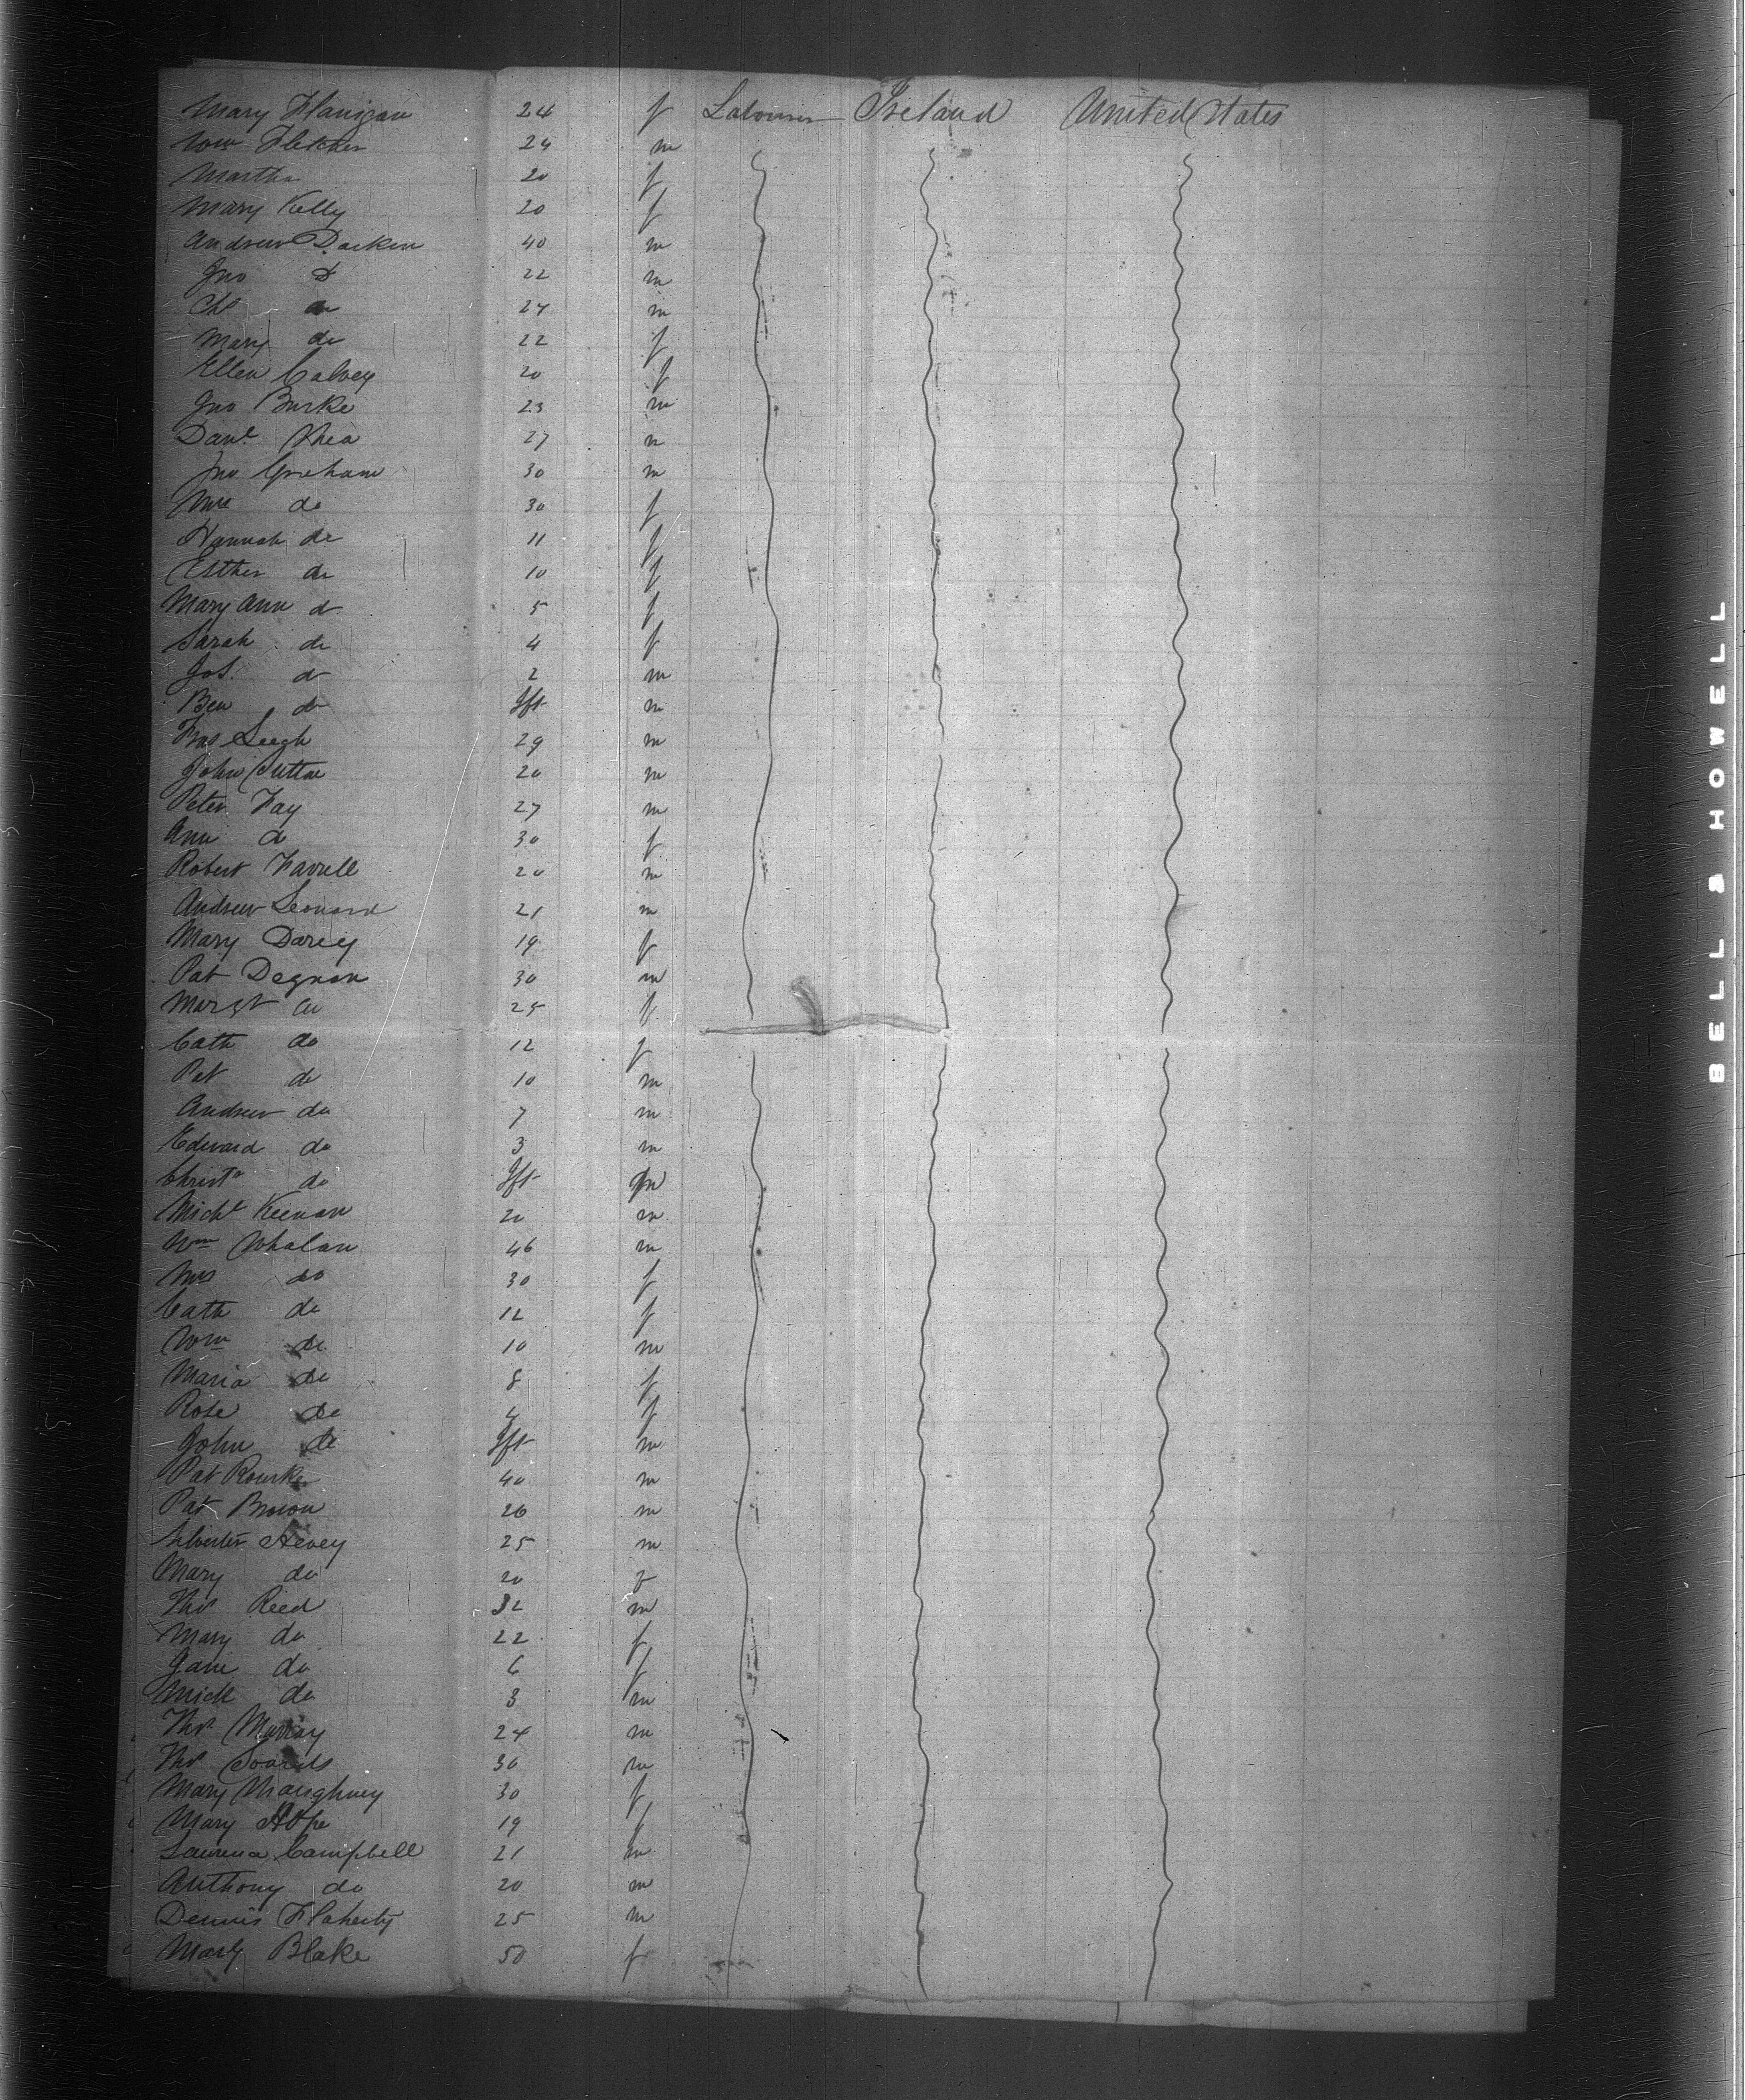 Mary Flanigan 24 f Labourer Ireland United States
Wm Fletcher 24 m
Martha 20 f
Mary Kelly 20 f
Andrew Darken 40 m
Jno do 22 m
Chs do 24 m
Mary do 22 f
Ellen Calvey 20 f
Jno Burke 23 m
Danl Shea 27 m
Jno Graham 30 m
Mrs do 30 f
Hannah do 11 f
Esther do 10 f
Mary Ann do 5 f
Sarah do 4 f
Jos. do 2 m
Ben do Jft m
Thos Leegh 29 m
John 20 m
Peter Fay 27 m
Ann do 30 f
Robert Farrell 20 m
Andrew Leonard 21 m
Mary Darcy 19 f
Pat Degnan 30 m
Margt do 25 f
Cath do 12 f
Pat do 10 m
Andrew do 7 m
Edward do 3 m
Christr do Jft m
Michl Keenan 20 m
Wm Whalan 46 m
Mrs do 30 f
Cath do 12 f
Wm do 10 m
Maria do 8 f
Rose do 4 f
John do Jft m
Pat Rourke 40 m
Pat Brown 26 m
Silvester Hevey 25 m
Mary do 20 f
Thos Reed 32 m
Mary do 22 f
Jane do 6 f
Mick do 3 m
Thos Murray 24 m
Thos 30 m
Mary Maughney 30 f
Mary Hope 19 f
Laurence Campbell 21 m
Anthony do 20 m
Dennis Flaherty 25 m
Mary Blake 50 f
BELL & HOWELL